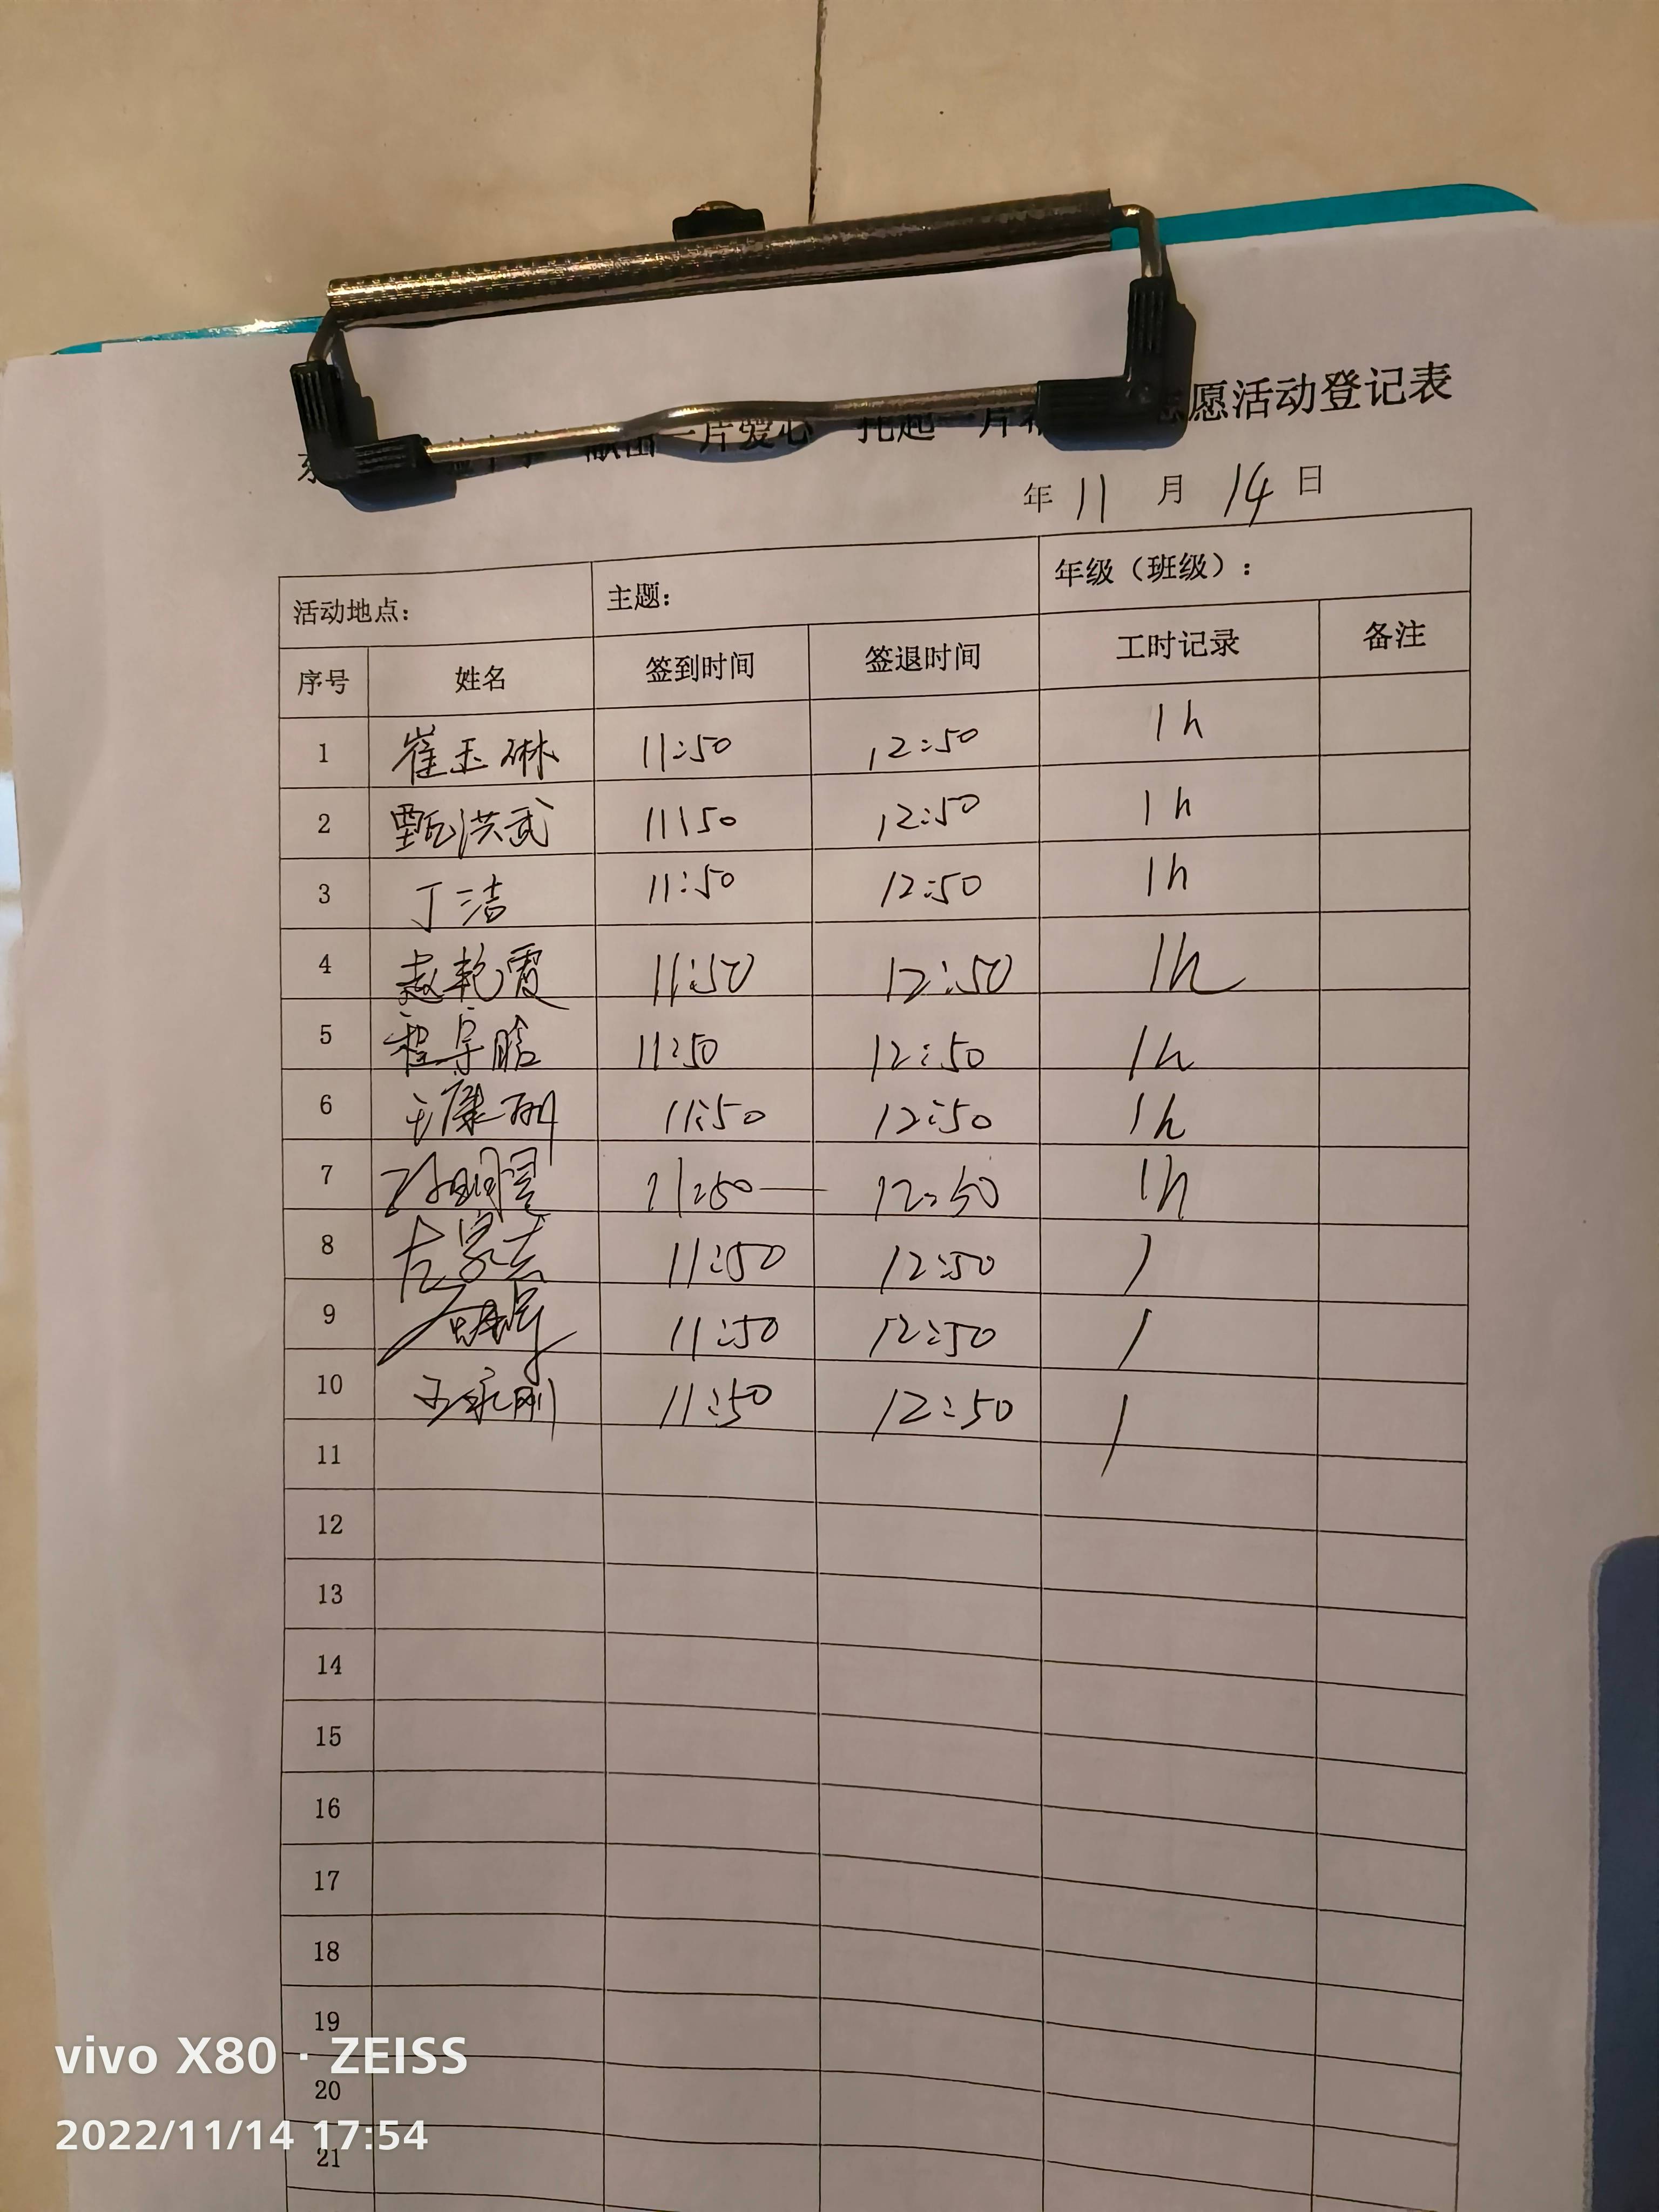 一片爱心 托起一片 愿活动登记表
年 11 月 14 日
活动地点: 主题: 年级（班级）:
序号 姓名 签到时间 签退时间 工时记录 备注
1 崔玉琳 11:50 12:50 1h
2 甄洪武 11:50 12:50 1h
3 丁洁 11:50 12:50 1h
4 赵乾霞 11:50 12:50 1h
5 程宇晗 11:50 12:50 1h
6 王康 11:50 12:50 1h
7 11:50 12:50 1h
8 左家吉 11:50 12:50 1
9 11:50 12:50 1
10 王永刚 11:50 12:50 1
11
12
13
14
15
16
17
18
19
20
21
vivo X80 · ZEISS
2022/11/14 17:54